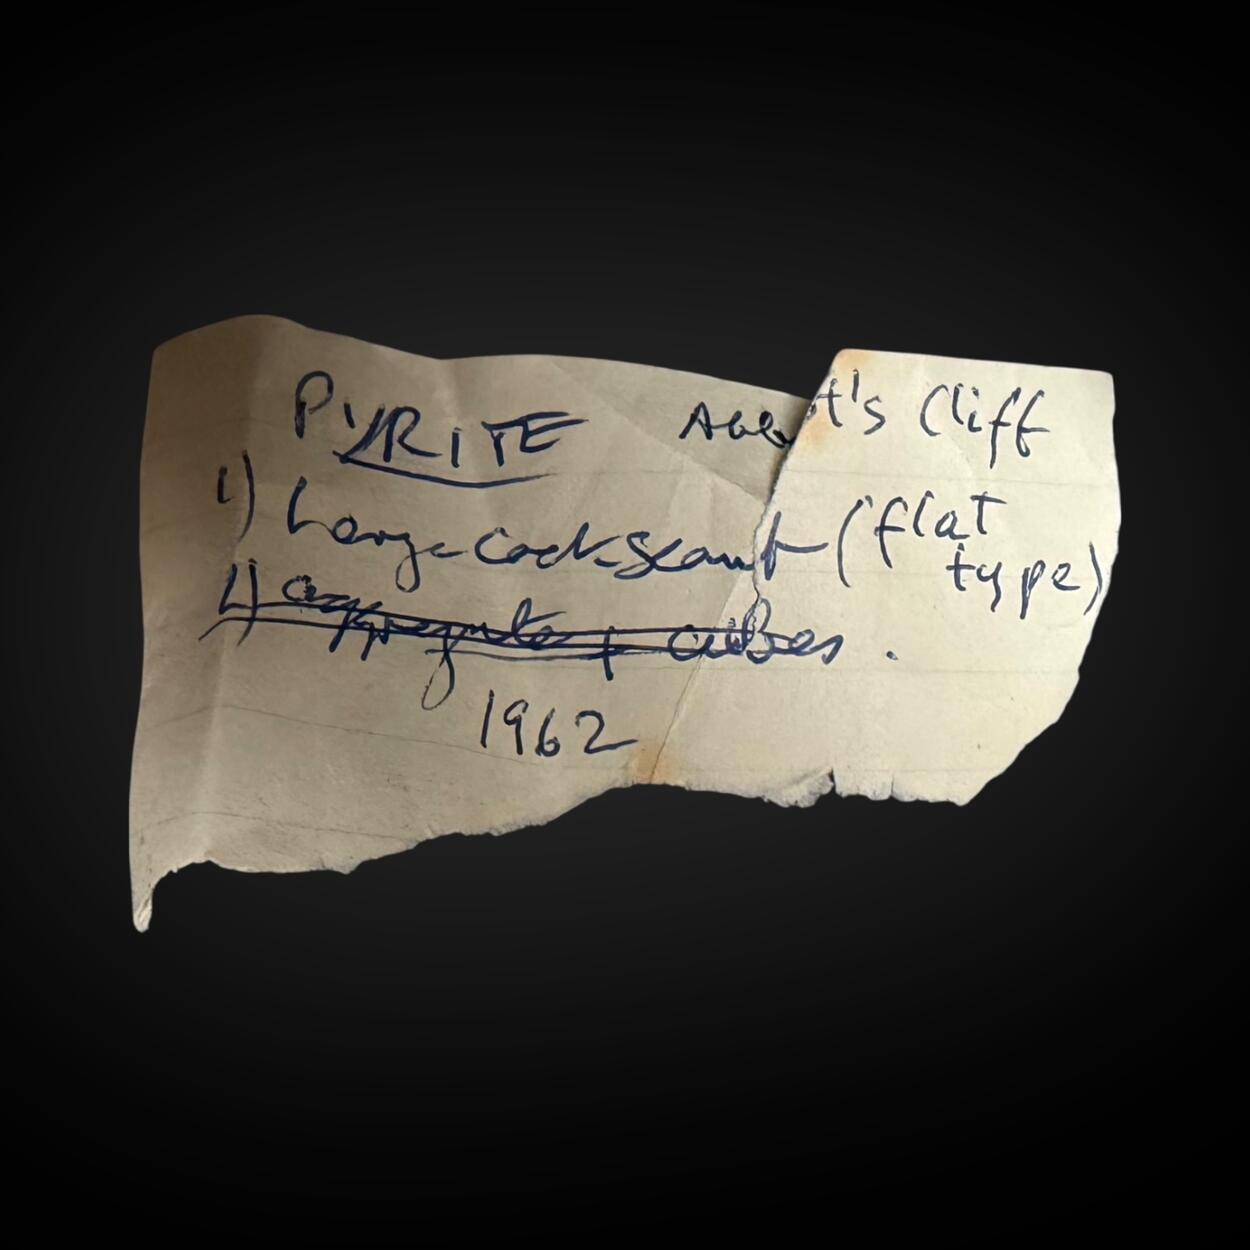 PYRITE Abbot's Cliff
1) Large Cockscomb (flat
type)
2) aggregate + cubes.
1962